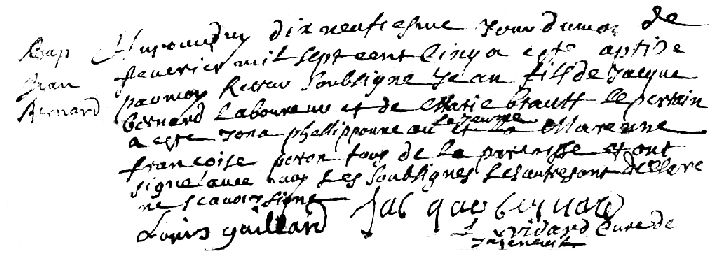 Bap
Jean
Bernard
Aujourdhuy dix neufiesme Jour du mois de
feuvrier mil sept cent Cinq a este aptise
par moy Soubsigne Jean fils de Jacque
bernard Laboureur et de Marie le parrain
a este phellipponneau le Jeune et la Marenne
francoise tous de la parroisse et ont
signe avec nous Les Soubsignes Les autres ont declare
ne scavoir signe
Louis gaillard Jacques bernard
Vridard Cure de